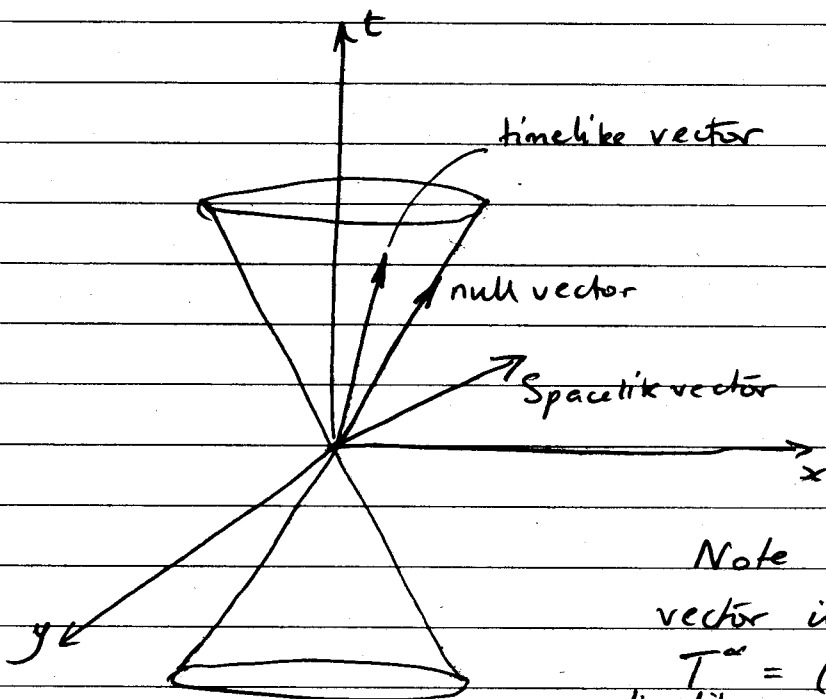 t
timelike vector
null vector
Spacelik vector
x
Note
vector i
y
T^α = (